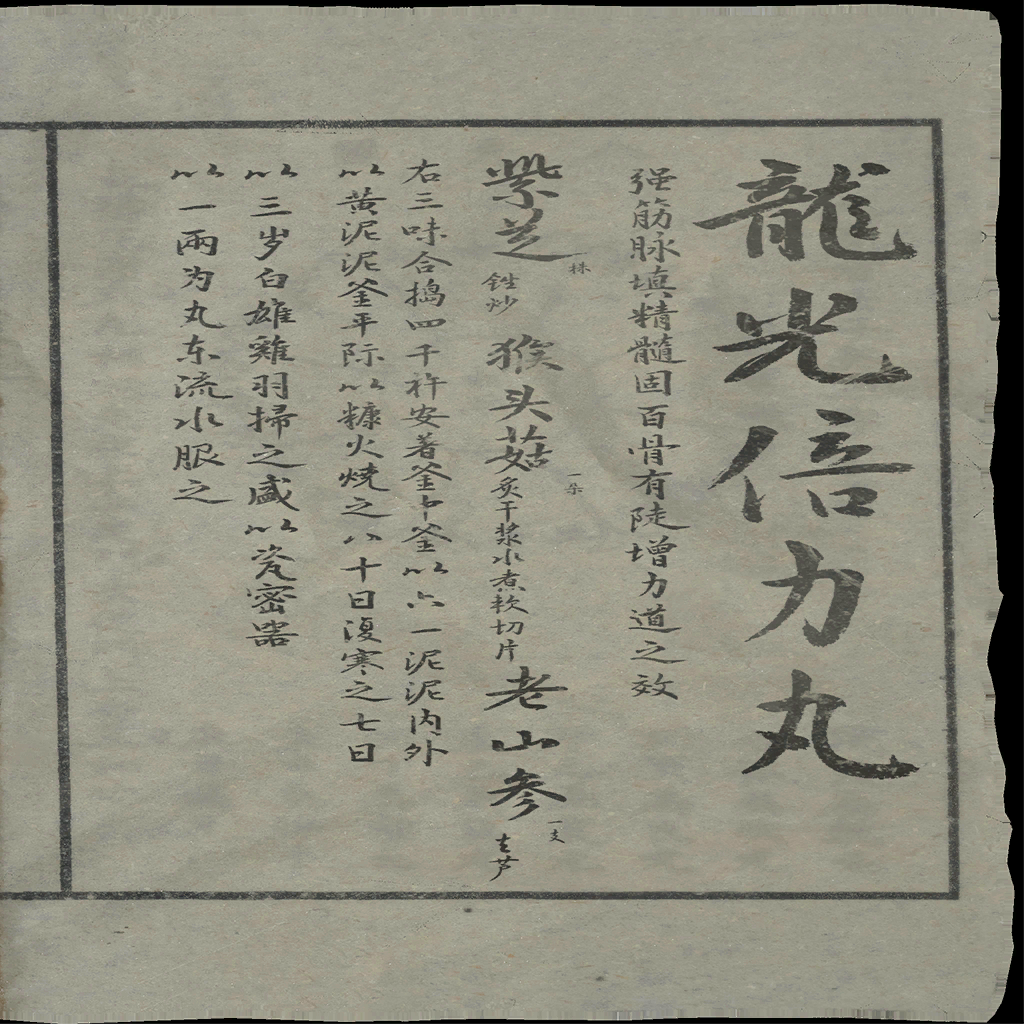 龍光倍力丸
强筋脉填精髓固百骨有陡增力道之效
紫芝一株 銼炒 猴头菇一朵 炙干漿水煮軟切片 老山参一支 去芦
右三味合搗四千杵安著釜中釜以六一泥泥内外
以黄泥泥釜平际以糠火烧之八十日復寒之七日
以三岁白雄雞羽掃之盛以瓷密器
以一兩为丸东流水服之